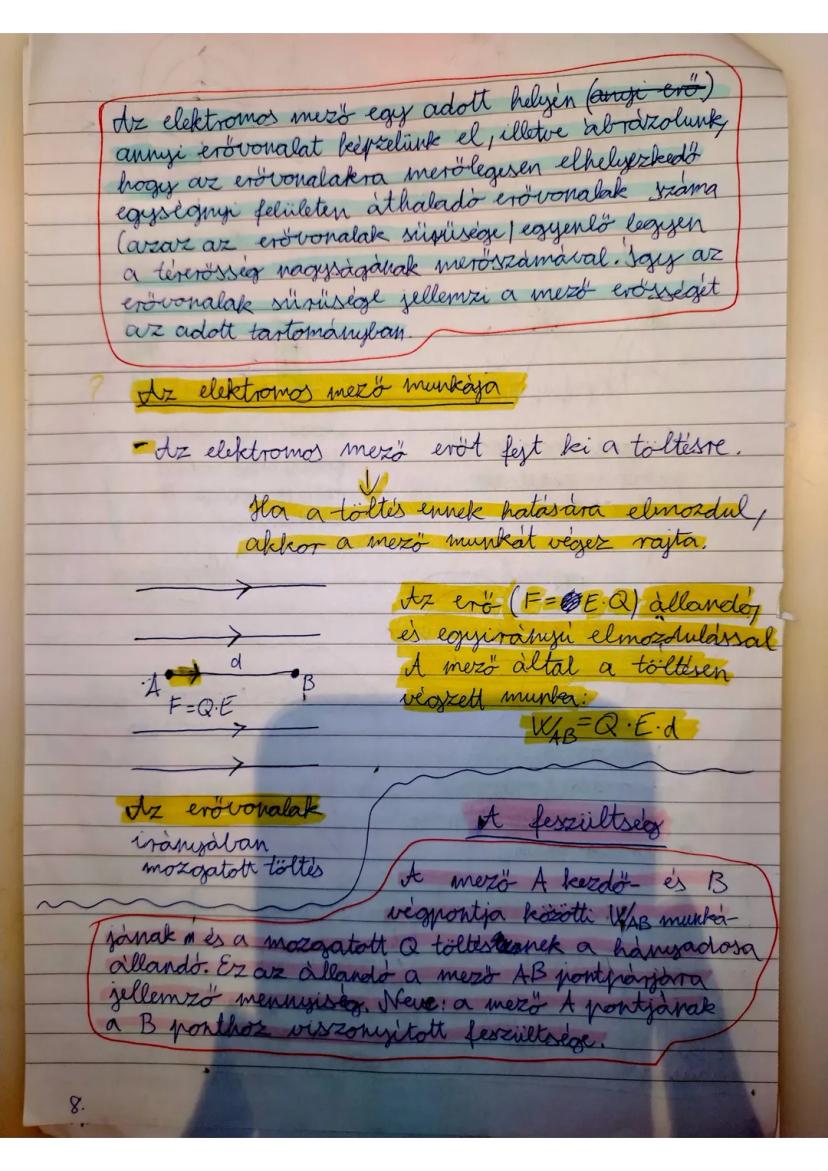 Az elektromos mező egy adott helyén (anyi erő)
annyi erővonalat képzelünk el, illetve ábrázolunk,
hogy az erővonalakra merőlegesen elhelyezkedő
egységnyi felületen áthaladó erővonalak száma
(azaz az erővonalak sűrűsége) egyenlő legyen
a térerősség nagyságának merőszámával. Így az
erővonalak sűrűsége jellemzi a mező erősségét
az adott tartományban.
?
Az elektromos mező munkája
- Az elektromos mező erőt fejt ki a töltésre.
Ha a töltés ennek hatására elmozdul,
akkor a mező munkát végez rajta.
Az erő (F=E·Q) állandó,
és egyirányú elmozdulással
A mező által a töltésen
végzett munka:
W_AB=Q·E·d
d
A B
F=Q·E
Az erővonalak
irányában
mozgatott töltés
A feszültség
A mező A kezdő- és B
végpontja közötti W_AB munká-
jának és a mozgatott Q töltésnek a hányadosa
állandó. Ez az állandó a mező AB pontpárjára
jellemző mennyiség. Neve: a mező A pontjának
a B ponthoz viszonyított feszültsége.
8.